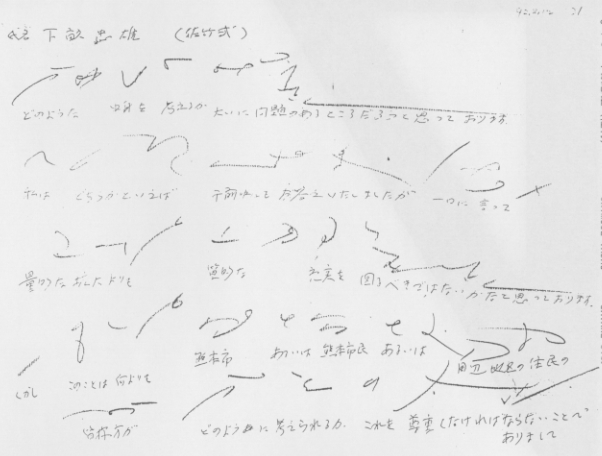 忠雄 (佐竹式)
どのような 中身を 考えるか 大いに 問題のあるところだろうと思っております。
私は どちらかといえば 午前中も お答えいたしましたが 一口に 言って
量的な 拡大よりも 質的な 充実を 図るべきではないかなと思っております。
しかし このことは 何よりも 熊本市 あるいは 熊本市民 あるいは 周辺 の住民の
皆様方が どのように考えられるか これを 尊重しなければならないことで
ありまして